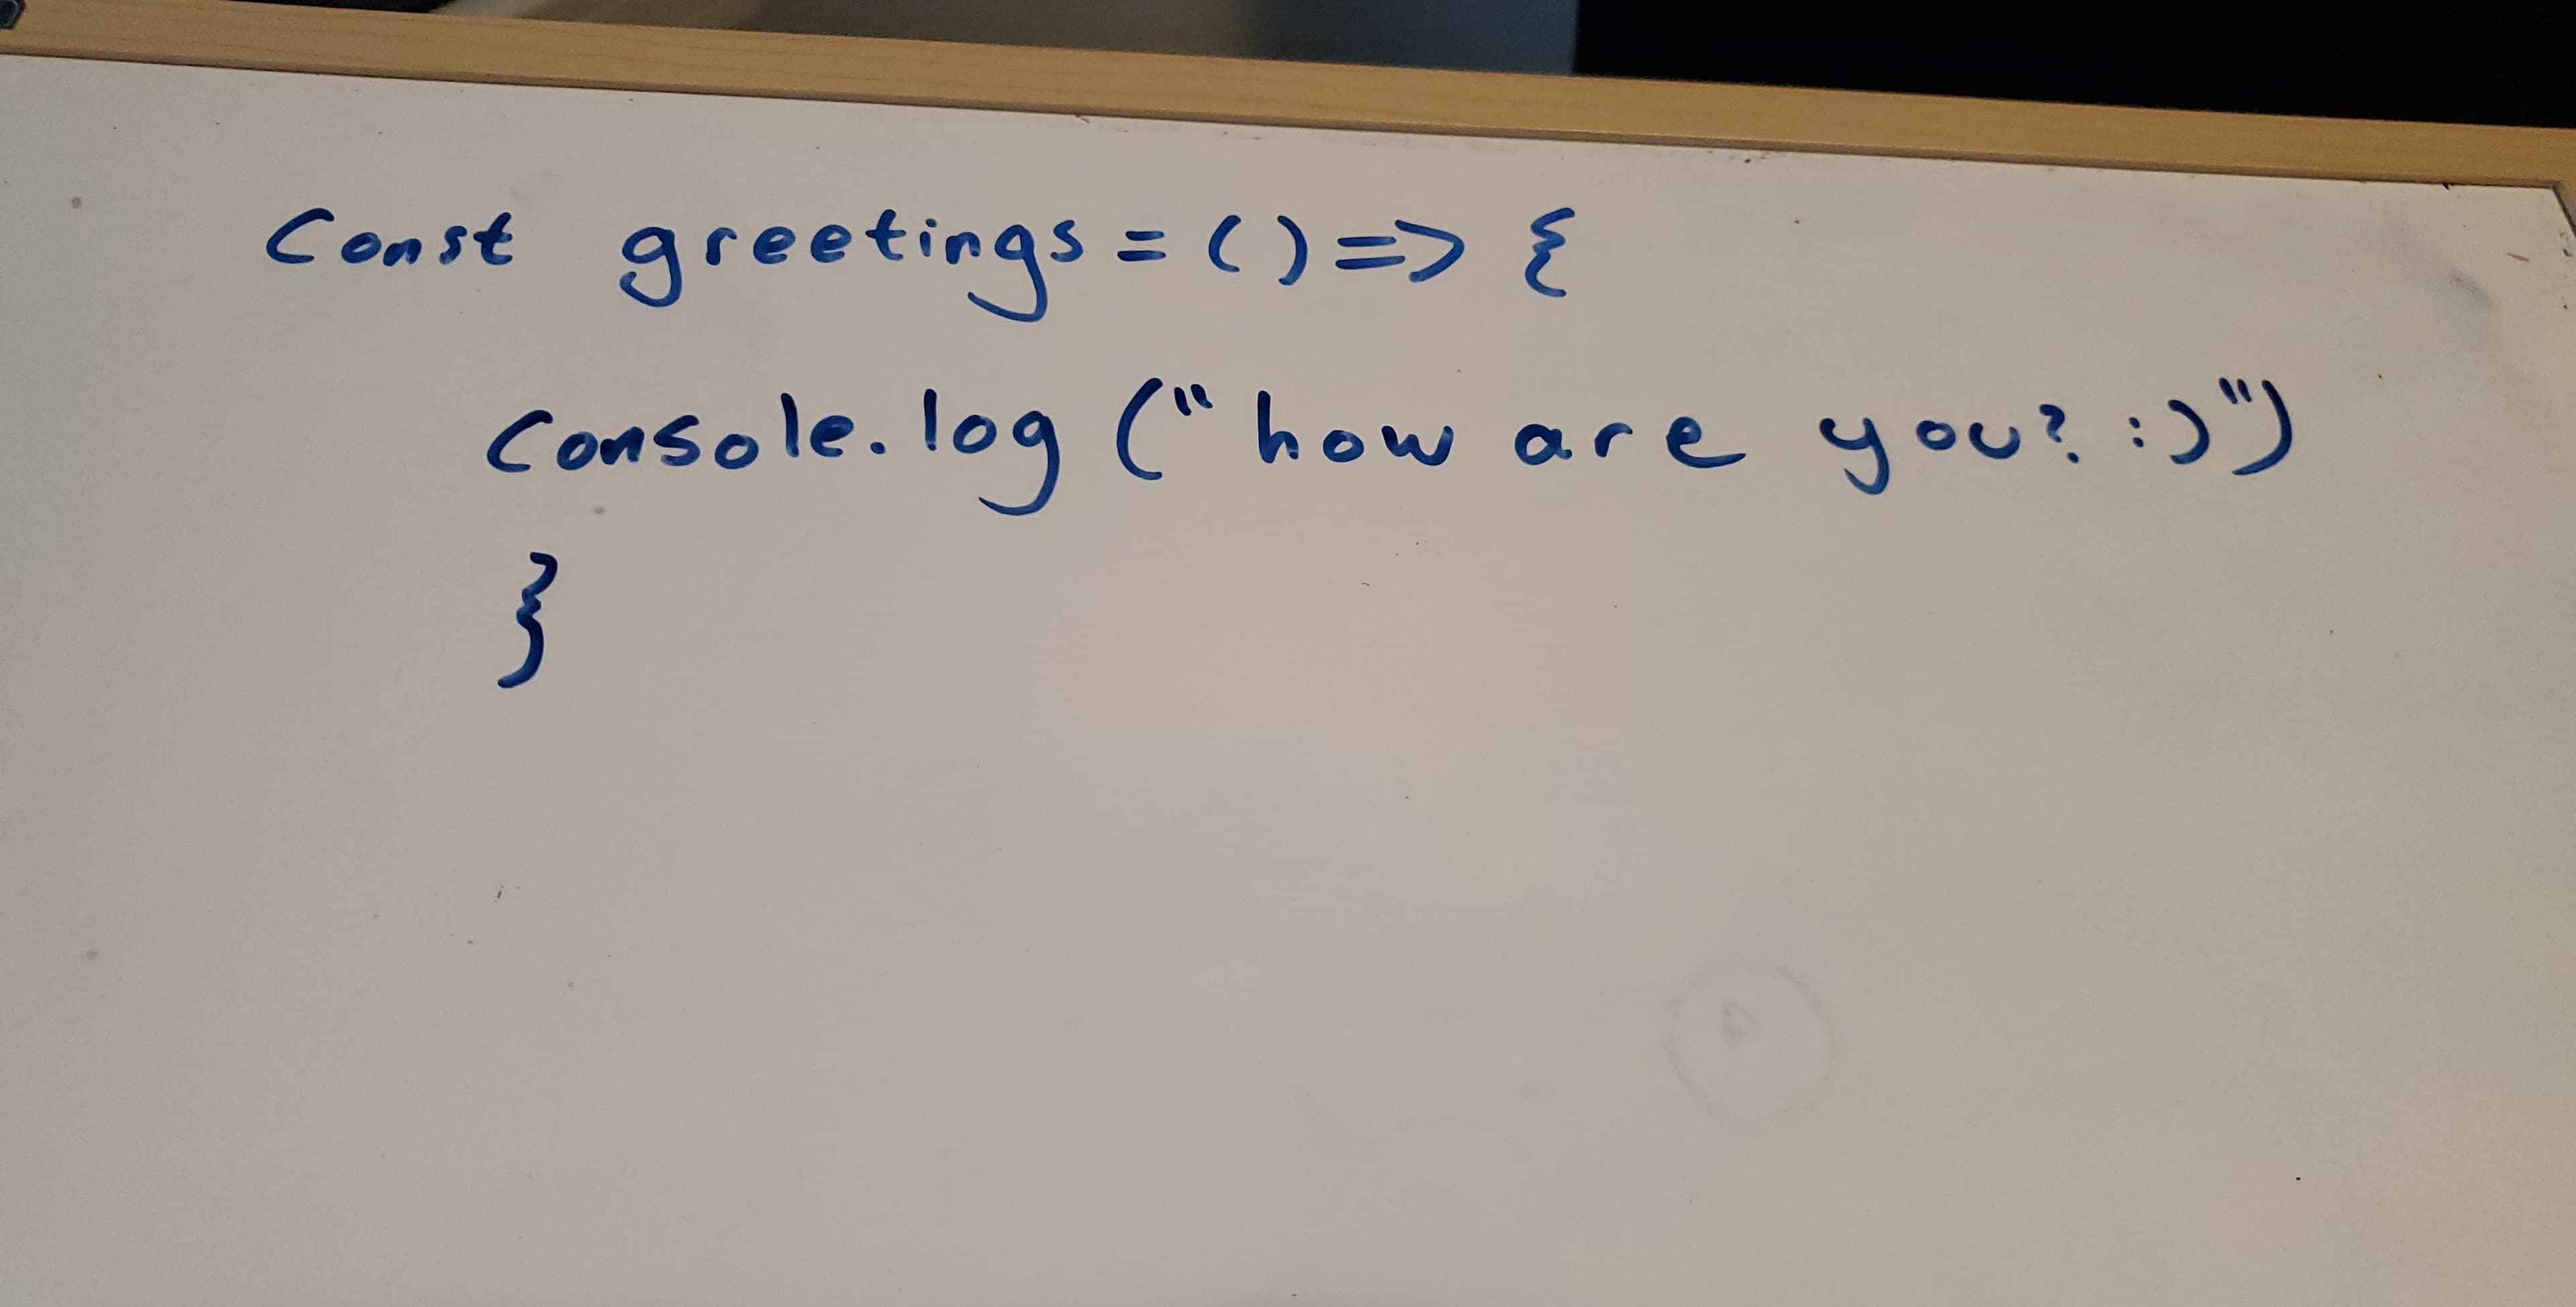 const greetings = () => {
console.log ("how are you? :)")
}